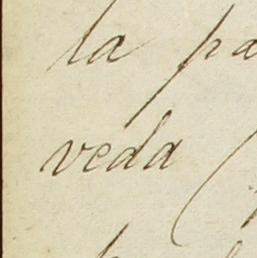 la pa
veda (